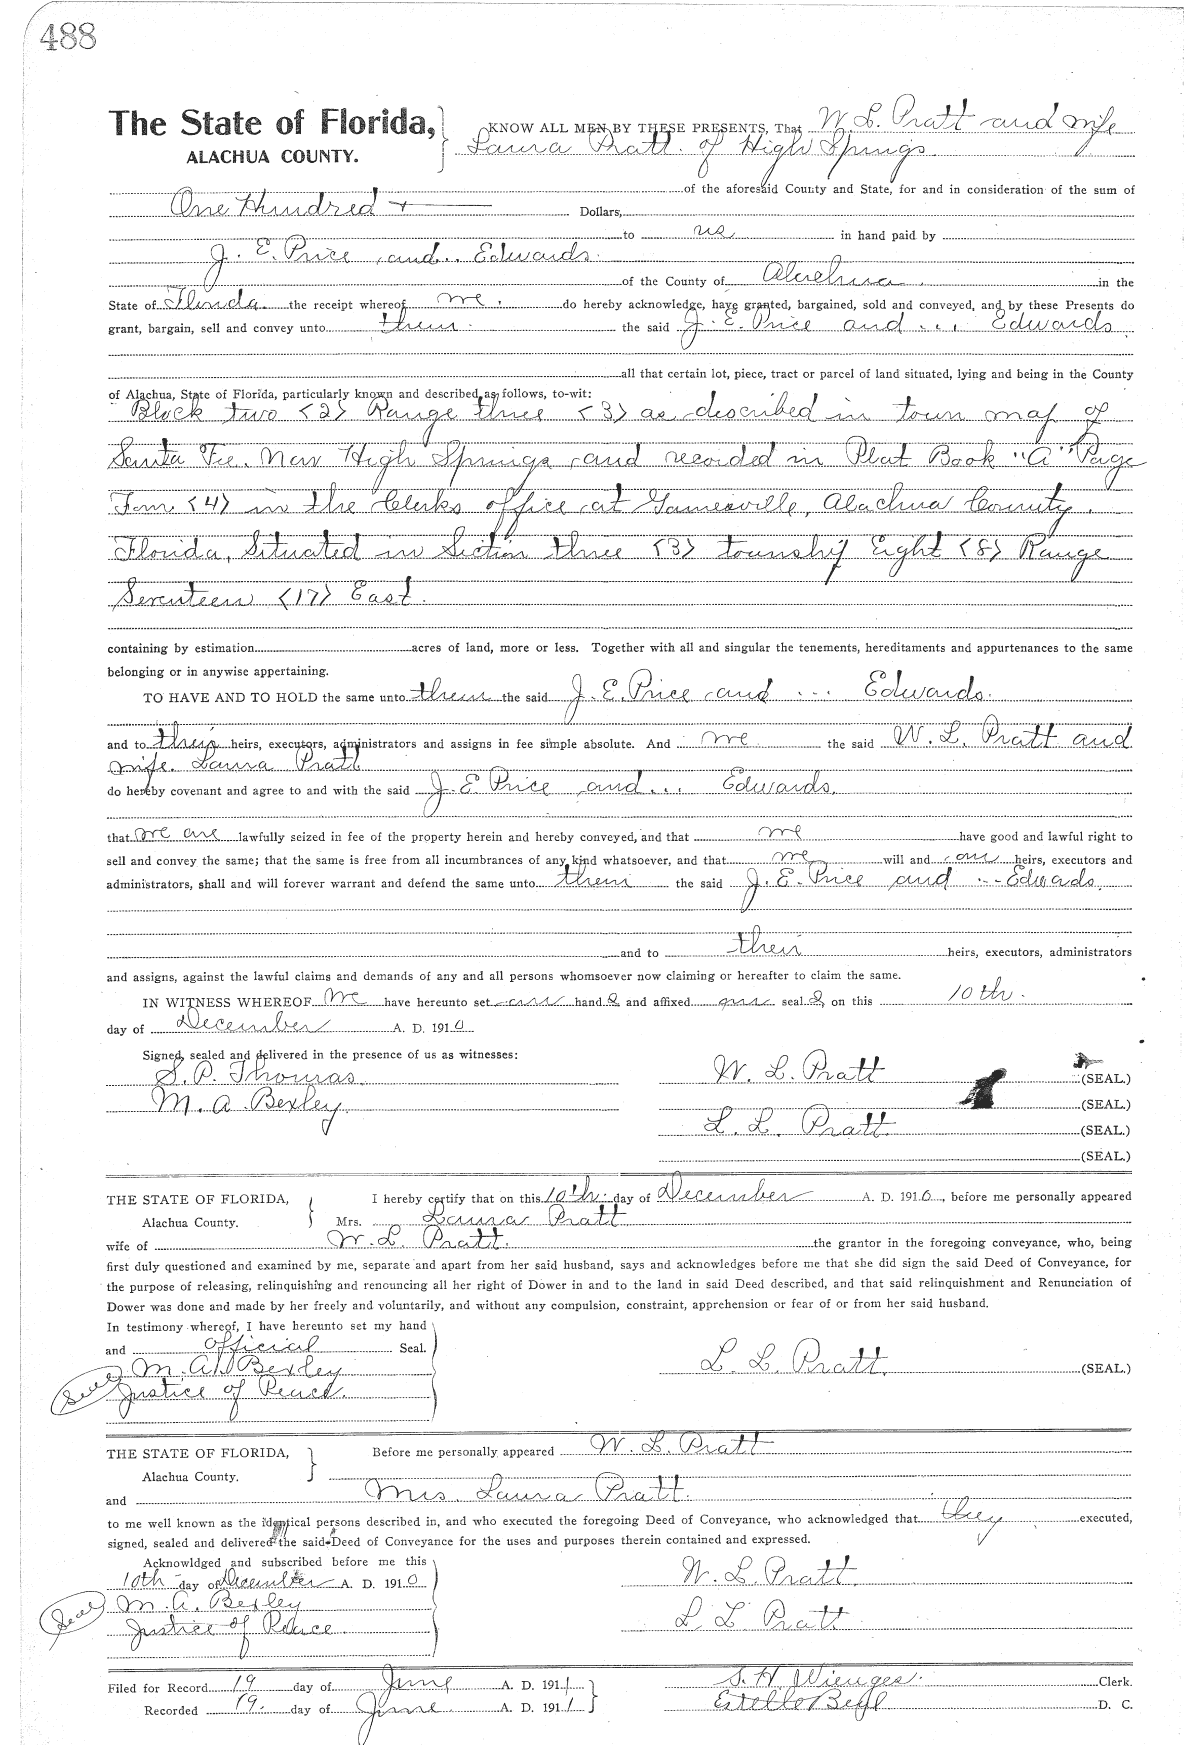 488
The State of Florida,
ALACHUA COUNTY.
KNOW ALL MEN BY THESE PRESENTS, That W. L. Pratt and wife
Laura Pratt. of High Springs
of the aforesaid County and State, for and in consideration of the sum of
One Hundred + Dollars,
to us in hand paid by
J. E. Price and .. Edwards.
of the County of Alachua. in the
State of Florida. the receipt whereof we. do hereby acknowledge, have granted, bargained, sold and conveyed, and by these Presents do
grant, bargain, sell and convey unto them. the said J. E. Price and ... Edwards
all that certain lot, piece, tract or parcel of land situated, lying and being in the County
of Alachua, State of Florida, particularly known and described as follows, to-wit:
Block two <2> Range three <3> as described in town map of
Santa Fee. Now High Springs and recorded in Plat Book "A" Page
Four <4> in the Clerks office at Gainesville, Alachua County.
Florida, Situated in Section three <3> township Eight <8> Range
Seventeen <17> East.
containing by estimation acres of land, more or less. Together with all and singular the tenements, hereditaments and appurtenances to the same
belonging or in anywise appertaining.
TO HAVE AND TO HOLD the same unto them the said J. E. Price and ... Edwards.
and to their heirs, executors, administrators and assigns in fee simple absolute. And we the said W. L. Pratt and
wife. Laura Pratt
do hereby covenant and agree to and with the said J. E. Price and ... Edwards.
that we are lawfully seized in fee of the property herein and hereby conveyed, and that we have good and lawful right to
sell and convey the same; that the same is free from all incumbrances of any kind whatsoever, and that we will and our heirs, executors and
administrators, shall and will forever warrant and defend the same unto them the said J. E. Price and ... Edwards.
and to their heirs, executors, administrators
and assigns, against the lawful claims and demands of any and all persons whomsoever now claiming or hereafter to claim the same.
IN WITNESS WHEREOF We have hereunto set our hand s and affixed our seal s on this 10th.
day of December A. D. 1910
Signed, sealed and delivered in the presence of us as witnesses:
S. P. Thomas. W. L. Pratt (SEAL.)
M. A. Bexley. (SEAL.)
L. L. Pratt (SEAL.)
(SEAL.)
THE STATE OF FLORIDA, I hereby certify that on this 10th. day of December A. D. 1910, before me personally appeared
Alachua County. Mrs. Laura Pratt
wife of W. L. Pratt. the grantor in the foregoing conveyance, who, being
first duly questioned and examined by me, separate and apart from her said husband, says and acknowledges before me that she did sign the said Deed of Conveyance, for
the purpose of releasing, relinquishing and renouncing all her right of Dower in and to the land in said Deed described, and that said relinquishment and Renunciation of
Dower was done and made by her freely and voluntarily, and without any compulsion, constraint, apprehension or fear of or from her said husband.
In testimony whereof, I have hereunto set my hand
and official Seal.
M. A. Bexley L. L. Pratt. (SEAL.)
Seal Justice of Peace.
THE STATE OF FLORIDA, Before me personally appeared W. L. Pratt
Alachua County.
and Mrs. Laura Pratt.
to me well known as the identical persons described in, and who executed the foregoing Deed of Conveyance, who acknowledged that they executed,
signed, sealed and delivered the said Deed of Conveyance for the uses and purposes therein contained and expressed.
Acknowldged and subscribed before me this
10th day of December A. D. 1910 W. L. Pratt.
Seal M. A. Bexley
Justice of Peace. L. L. Pratt
Filed for Record 19 day of June A. D. 1911 S. H. Wienges. Clerk.
Recorded 19. day of June. A. D. 1911 Estelle D. C.